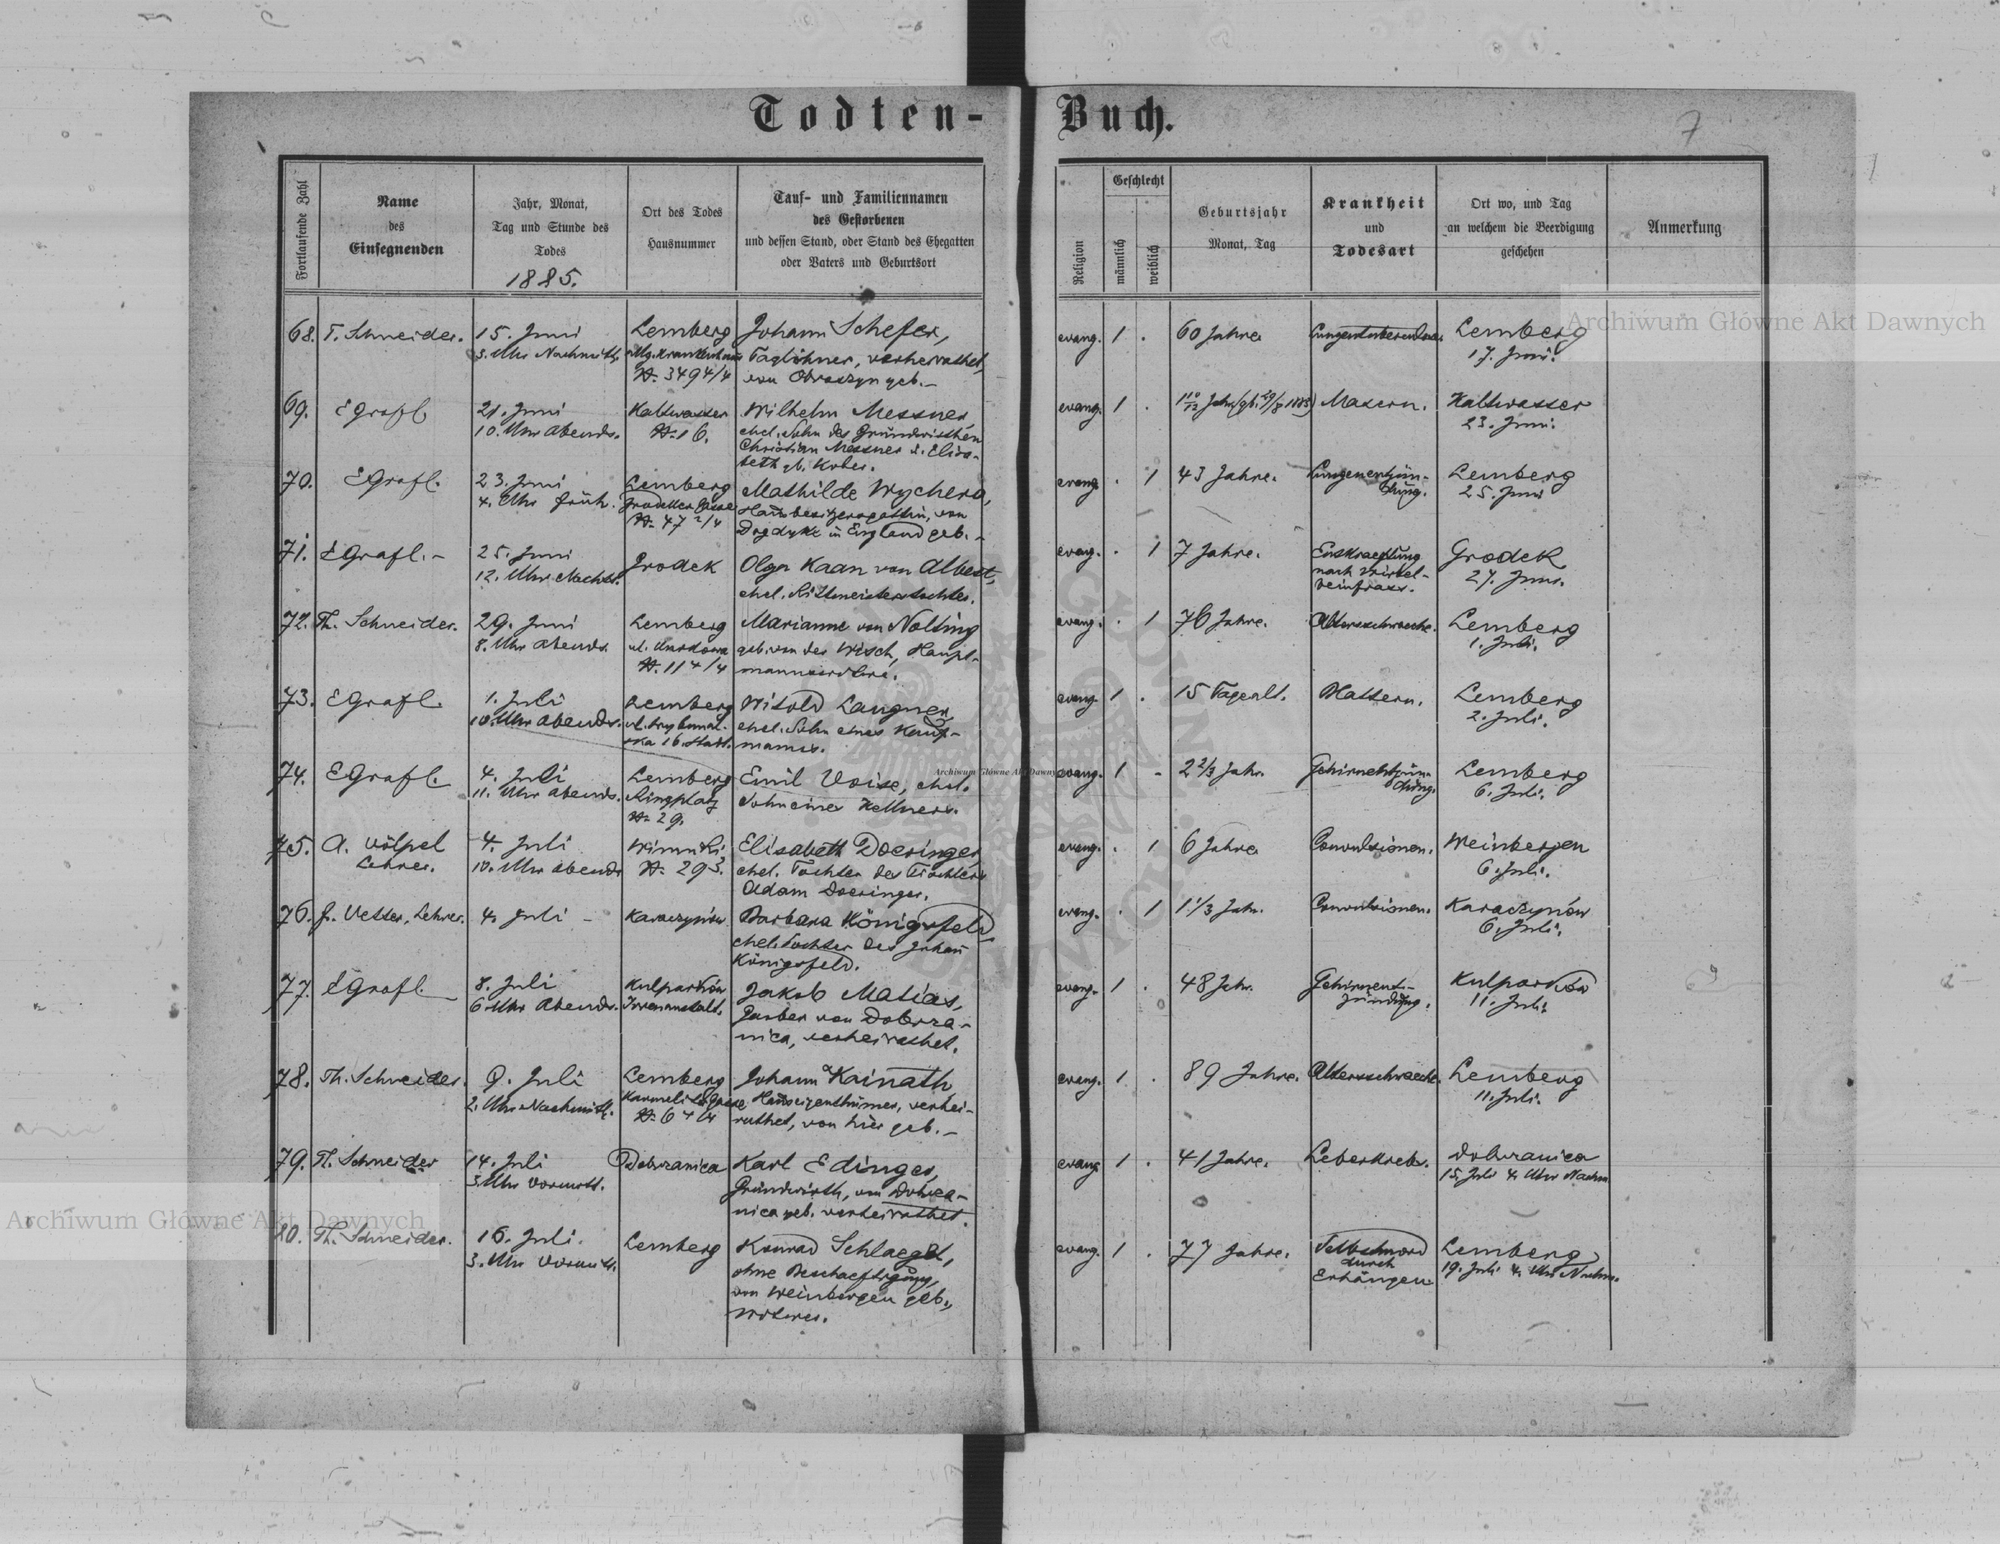 Todten-Buch.
7
Fortlaufende Zahl
Name
des
Einsegnenden
Jahr, Monat,
Tag und Stunde des
Todes
1885.
Ort des Todes
Hausnummer
Tauf- und Familiennamen
des Gestorbenen
und dessen Stand, oder Stand des Ehegatten
oder Vaters und Geburtsort
Religion
Geschlecht
männlich
weiblich
Geburtsjahr
Monat, Tag
Krankheit
und
Todesart
Ort wo, und Tag
an welchem die Beerdigung
geschehen
Anmerkung
68. T. Schneider.
15. Juni
3. Uhr Nachmitt.
Lemberg
Allg. Krankenhaus
N. 349 4/4
Johann Schefer,
Taglöhner, verheirathet,
von Obroszyn geb. –
evang. 1 .
60 Jahre
Lungentuberculose
Lemberg
17. Juni.
69. E Grafl
21. Juni
10. Uhr Abends.
Kaltwasser
N. 16.
Wilhelm Messner,
ehel. Sohn des Grundwirthen
Christian Messner u. Elisa-
beth gb. Kober.
evang. 1 .
Masern.
Kaltwasser
23. Juni.
70. E Grafl.
23. Juni
4. Uhr früh.
Lemberg
Grodeker Gasse
N. 47 2/4
Mathilde Wychera,
Hausbesitzersgattin, von
in England geb. –
evang . 1
43 Jahre.
Lungenentzün-
dung.
Lemberg
25. Juni
71. E Grafl. –
25. Juni
12. Uhr Nachts.
Grodek
Olga Kaan von Albest,
ehel. Rittmeisterstochter.
evang. . 1
7 Jahre.
Entkraeftung
nach Wirbel-
beinfrass.
Grodek
27. Juni.
72. Th. Schneider.
29. Juni
8. Uhr Abends.
Lemberg
N. 11 4/4
Marianne von Nolting
geb. von der Wisch, Haupt-
mannswitwe.
evang. . 1
76 Jahre.
Altersschwaeche.
Lemberg
1. Juli.
73. E Grafl.
1. Juli
10. Uhr Abends.
Lemberg
ul. Trybunal-
ska 16. Stadt.
Witold Langner,
ehel. Sohn eines Kauf-
manns.
evang. 1 .
15 Tage alt.
Blattern.
Lemberg
2. Juli.
74. E Grafl.
4. Juli
11. Uhr Abends.
Lemberg
Ringplatz
N. 29.
Emil Voise, ehel.
Sohn eines Kellners.
evang. 1 -
2 2/3 Jahr.
Gehirnentzün-
dung.
Lemberg
6. Juli.
75. A. Völpel
Lehrer.
4. Juli
10. Uhr Abends
Winniki
N. 293.
Elisabeth Doeringer,
ehel. Tochter des Tischlers
Adam Doeringer.
evang. . 1
6 Jahre
Convulsionen.
Weinbergen
6. Juli.
76. J. Vetter, Lehrer.
4. Juli –
Karaczynów
Barbara Königsfeld,
ehel. Tochter des Johann
Königsfeld.
evang. . 1
1 1/3 Jahr.
Convulsionen.
Karaczynów
6. Juli.
77. E Grafl.
8. Juli
6 Uhr Abends.
Kulparków
Irrenanstalt.
Jakob Matias,
Garber von Dobrza-
nica, verheirathet.
evang. 1 .
48 Jahr.
Gehirnent-
zündung.
Kulparków
11. Juli.
78. Th. Schneider.
9. Juli
2. Uhr Nachmitt.
Lemberg
Karmeliter Gasse
N. 6 4/4
Johann Kainath,
Hauseigenthümer, verhei-
rathet, von hier geb. –
evang. 1 .
89 Jahre.
Altersschwaeche.
Lemberg
11. Juli.
79. Th. Schneider
14. Juli
3. Uhr Vormitt.
Dobrzanica
Karl Edinger,
Grundwirth, von Dobrza-
nica geb. verheirathet.
evang. 1 .
41 Jahre.
Leberkrebs.
Dobrzanica
15. Juli 4. Uhr Nachm
80. Th. Schneider.
16. Juli.
3. Uhr Vormitt.
Lemberg
Konrad Schlaegel,
ohne Beschaeftigung,
von Weinbergen geb.,
Witwer.
evang. 1 .
77 Jahre.
Selbstmord
durch
Erhängen
Lemberg
19. Juli 4. Uhr Nachm.
Archiwum Główne Akt Dawnych
Archiwum Główne Akt Dawnych
Archiwum Główne Akt Dawnych